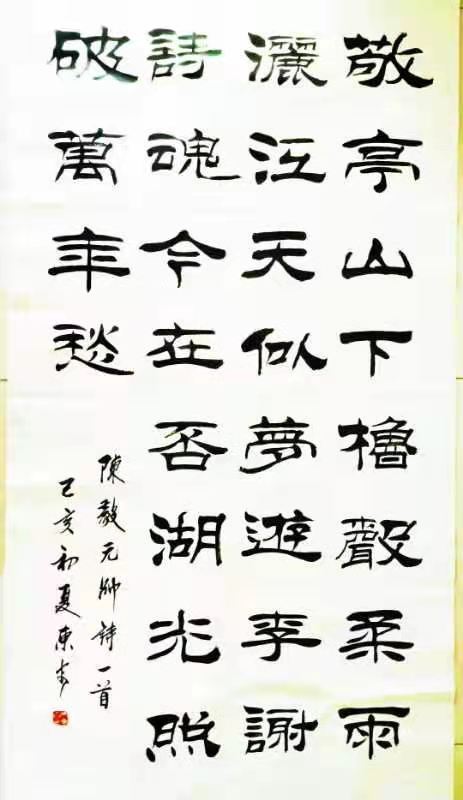 敬亭山下櫓聲柔雨
灑江天似夢遊李謝
詩魂今在否湖光照
破萬年愁
陳毅元帥詩一首
己亥初夏東